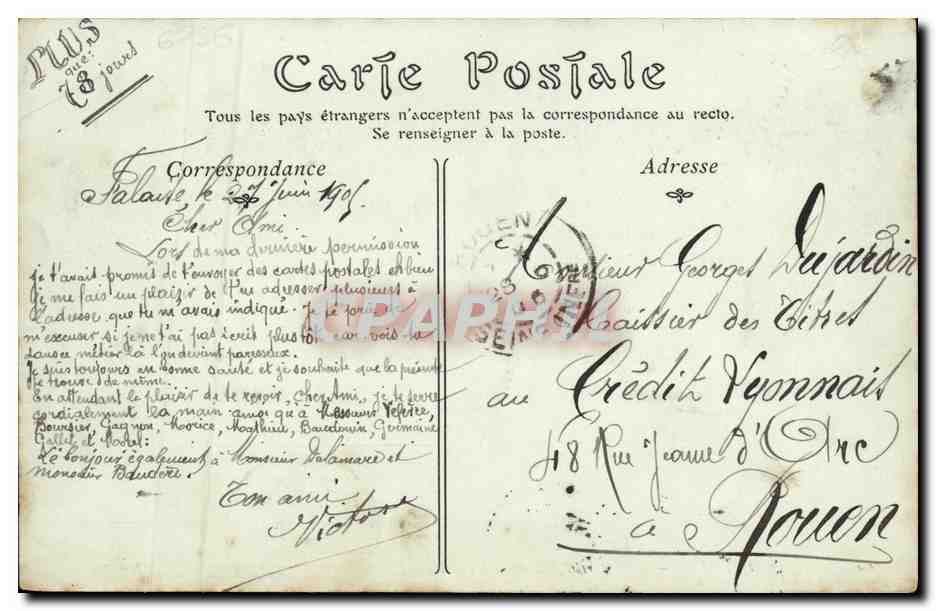 PLUS
que:
78 jours
Carte Postale
Tous les pays étrangers n'acceptent pas la correspondance au recto.
Se renseigner à la poste.
Correspondance
Falaise, le 27 Juin 190
Cher Ami.
Lors de ma dernière permission
je t'avait promis de t'envoyer des cartes postales eh bien
je me fais un plaisir de t'en adresser plusieurs à
l'adresse que tu m'avais indiqué. Je te prie de
m'excuser si je ne t'ai pas écrit plus tôt car vois-tu
dans ce métier là l'on devient paresseux.
Je suis toujours en bonne santé et je souhaite que la présente
te trouve de même.
En attendant le plaisir de te revoir, cher Ami, je te serre
cordialement la main ainsi qu'à Messieurs Lefèvre,
Boursier, Gagnon, Morice, Mathieu, Baudouin, Germaine
Gallet et
Le bonjour également à Monsieur Delamare et
monsieur
Ton ami.
Victor
Adresse
Monsieur Georges Dujardin
Caissier des Titres
au Crédit Lyonnais
48 Rue Jeanne d'Arc
à Rouen
ROUEN
SEINE INFRE
CPAPHIL